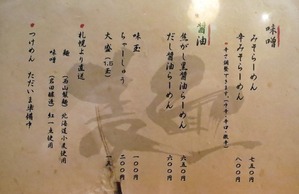 味噌
みそらーめん 七五〇
辛みそらーめん 八〇〇
醤油
焦がし黒醤油らーめん 六五〇
だし醤油らーめん 六〇〇
味玉 一〇〇
ちゃーしゅう 二〇〇
大盛(1.5玉) 一五〇
札幌より直送
麺
味噌
つけめん ただいま準備中